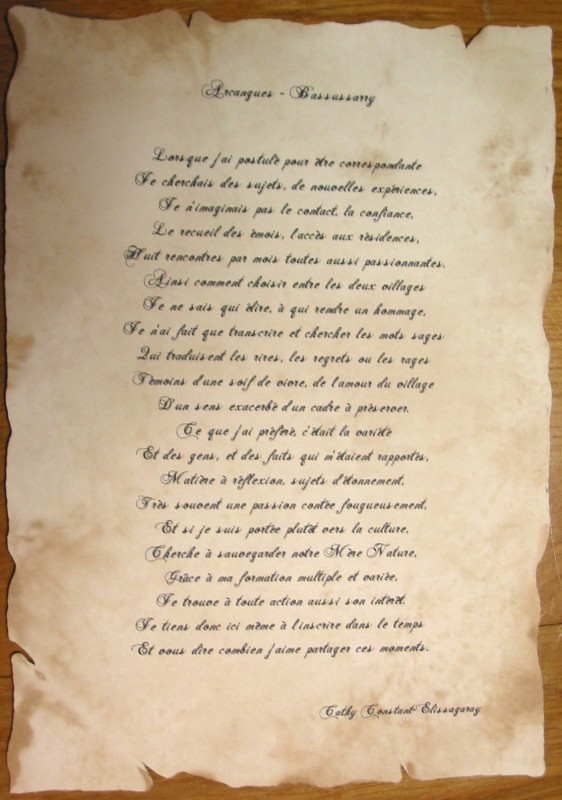 Arcangues - Bassussarry
Lorsque j'ai postulé pour être correspondante
Je cherchais des sujets, de nouvelles expériences,
Je n'imaginais pas le contact, la confiance,
Le recueil des émois, l'accès aux résidences,
Huit rencontres par mois toutes aussi passionnantes.
Ainsi comment choisir entre les deux villages
Je ne sais qui élire, à qui rendre un hommage,
Je n'ai fait que transcrire et chercher les mots sages
Qui traduisent les rires, les regrets ou les rages
Témoins d'une soif de vivre, de l'amour du village
D'un sens exacerbé d'un cadre à préserver.
Ce que j'ai préféré, c'était la variété
Et des gens, et des faits qui m'étaient rapportés,
Matière à réflexion, sujets d'étonnement,
Très souvent une passion contée fougueusement,
Et si je suis portée plutôt vers la culture,
Cherche à sauvegarder notre Mère Nature,
Grâce à ma formation multiple et variée,
Je trouve à toute action aussi son intérêt.
Je tiens donc ici même à l'inscrire dans le temps
Et vous dire combien j'aime partager ces moments.
Cathy Constant-Elissagaray